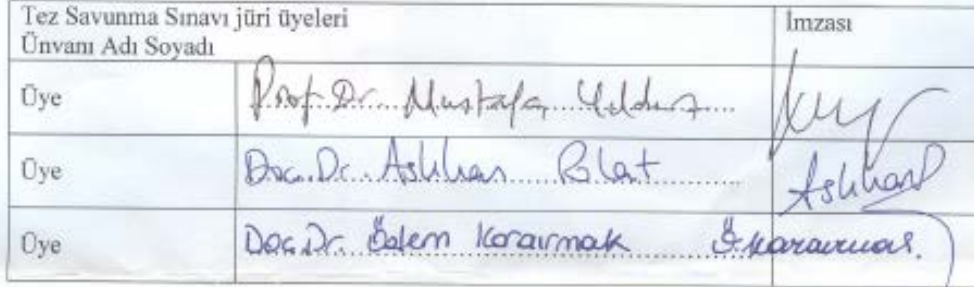 Tez Savunma Sınavı jüri üyeleri İmzası
Ünvanı Adı Soyadı
Üye Prof. Dr. Mustafa Yıldız
Üye Doç. Dr. Aslıhan Polat Aslıhan P
Üye Doç. Dr. Özlem Karaırmak Ö.Karaırmak.